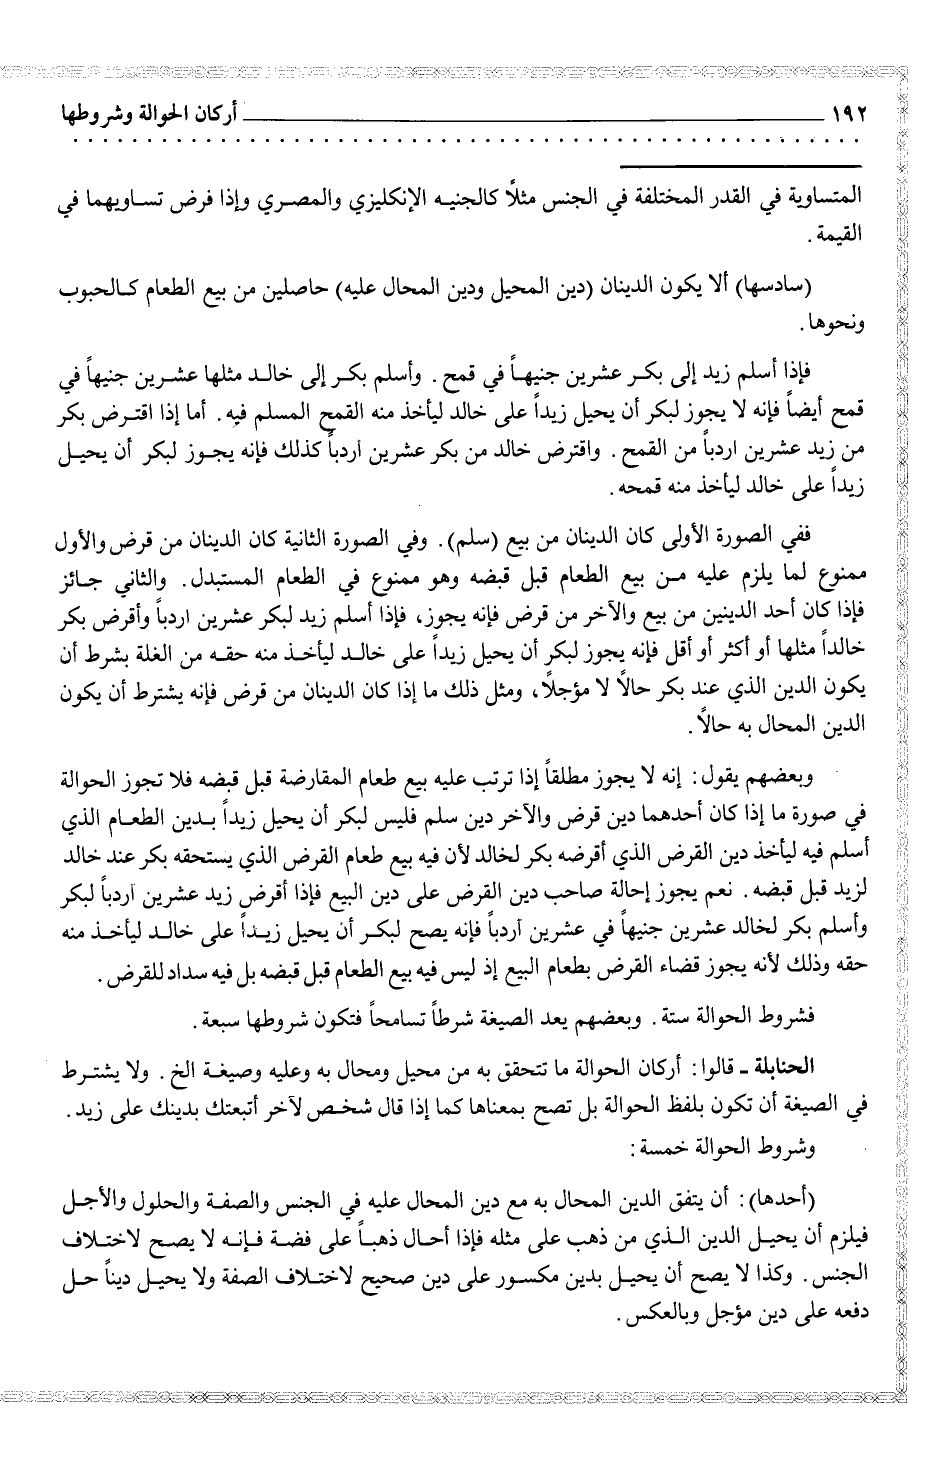 ١٩٢ أركان الحوالة وشروطها
المتساوية في القدر المختلفة في الجنس مثلاً كالجنيه الإنكليزي والمصري وإذا فرض تساويهما في
القيمة .
(سادسها) ألا يكون الدينان (دين المحيل ودين المحال عليه) حاصلين من بيع الطعام كالحبوب
ونحوها .
فإذا أسلم زيد إلى بكر عشرين جنيهاً في قمح . وأسلم بكر إلى خالد مثلها عشرين جنيهاً في
قمح أيضاً فإنه لا يجوز لبكر أن يحيل زيداً على خالد ليأخذ منه القمح المسلم فيه . أما إذا اقترض بكر
من زيد عشرين اردباً من القمح . واقترض خالد من بكر عشرين أردباً كذلك فإنه يجوز لبكر أن يحيل
زيداً على خالد ليأخذ منه قمحه .
ففي الصورة الأولى كان الدينان من بيع (سلم) . وفي الصورة الثانية كان الدينان من قرض والأول
ممنوع لما يلزم عليه من بيع الطعام قبل قبضه وهو ممنوع في الطعام المستبدل . والثاني جائز
فإذا كان أحد الدينين من بيع والآخر من قرض فإنه يجوز، فإذا أسلم زيد لبكر عشرين اردباً وأقرض بكر
خالداً مثلها أو أكثر أو أقل فإنه يجوز لبكر أن يحيل زيداً على خالد ليأخذ منه حقه من الغلة بشرط أن
يكون الدين الذي عند بكر حالاً لا مؤجلاً، ومثل ذلك ما إذا كان الدينان من قرض فإنه يشترط أن يكون
الدين المحال به حالاً .
وبعضهم يقول : إنه لا يجوز مطلقاً إذا ترتب عليه بيع طعام المقارضة قبل قبضه فلا تجوز الحوالة
في صورة ما إذا كان أحدهما دين قرض والآخر دين سلم فليس لبكر أن يحيل زيداً بدين الطعام الذي
أسلم فيه ليأخذ دين القرض الذي أقرضه بكر لخالد لأن فيه بيع طعام القرض الذي يستحقه بكر عند خالد
لزيد قبل قبضه . نعم يجوز إحالة صاحب دين القرض على دين البيع فإذا أقرض زيد عشرين أردباً لبكر
وأسلم بكر لخالد عشرين جنيهاً في عشرين أردباً فإنه يصح لبكر أن يحيل زيداً على خالد ليأخذ منه
حقه وذلك لأنه يجوز قضاء القرض بطعام البيع إذ ليس فيه بيع الطعام قبل قبضه بل فيه سداد للقرض .
فشروط الحوالة ستة . وبعضهم يعد الصيغة شرطاً تسامحاً فتكون شروطها سبعة .
الحنابلة - قالوا : أركان الحوالة ما تتحقق به من محيل ومحال به وعليه وصيغة الخ . ولا يشترط
في الصيغة أن تكون بلفظ الحوالة بل تصح بمعناها كما إذا قال شخص لآخر أتبعتك بدينك على زيد .
وشروط الحوالة خمسة :
(أحدها) : أن يتفق الدين المحال به مع دين المحال عليه في الجنس والصفة والحلول والأجل
فيلزم أن يحيل الدين الذي من ذهب على مثله فإذا أحال ذهباً على فضة فإنه لا يصح لاختلاف
الجنس . وكذا لا يصح أن يحيل بدين مكسور على دين صحيح لاختلاف الصفة ولا يحيل ديناً حل
دفعه على دين مؤجل وبالعكس .